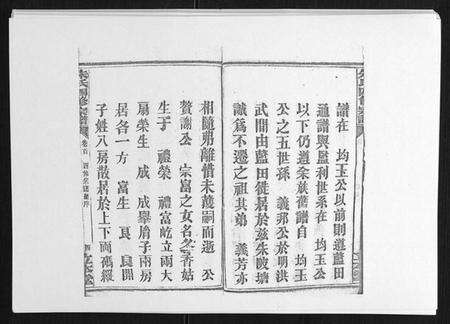 譜在 均玉公以前則遵藍田
通譜與盤利世系在 均玉公
以下仍遵朱族舊譜自 均玉
公之五世孫 義邦公於明洪
武間由藍田徙居於茲朱陂塘
誠為不遷之祖其弟 義芳亦
相隨弗離惜未蔓嗣而逝 公
贅謝公 宗富之女名冬香姑
生子 禮榮 禮富屹立兩大
房榮生 成 成舉兩子兩房
居各一方 富生 良 良開
子姓八房散居於上下兩
朱氏四修宗譜
卷首